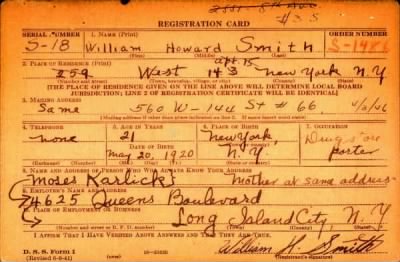 REGISTRATION CARD
SERIAL NUMBER 1. NAME (Print) ORDER NUMBER
S-18 William Howard Smith S-1986
apt. 15
2. PLACE OF RESIDENCE (Print)
259 West 143 New York N.Y
(Number and street) (Town, township, village, or city) (County) (State)
[THE PLACE OF RESIDENCE GIVEN ON THE LINE ABOVE WILL DETERMINE LOCAL BOARD
JURISDICTION; LINE 2 OF REGISTRATION CERTIFICATE WILL BE IDENTICAL]
3. MAILING ADDRESS
Same 560 W-144 St # 66
[Mailing address if other than place indicated on line 2. If same insert word same]
4. TELEPHONE 5. AGE IN YEARS 6. PLACE OF BIRTH 7. OCCUPATION
none 21 New York, Drug store
DATE OF BIRTH
May 20, 1920 N.Y. porter
(Exchange) (Number) (Mo.) (Day) (Yr.) (State or country)
8. NAME AND ADDRESS OF PERSON WHO WILL ALWAYS KNOW YOUR ADDRESS
Mother at same address
Moses Karlicks
9. EMPLOYER'S NAME AND ADDRESS
4625 Queens Boulevard
10. PLACE OF EMPLOYMENT OR BUSINESS
Long Island City, N.Y
(Number and street or R. F. D. number) (Town) (County) (State)
I AFFIRM THAT I HAVE VERIFIED ABOVE ANSWERS AND THAT THEY ARE TRUE.
D. S. S. Form 1
(Revised 6-9-41) William H. Smith